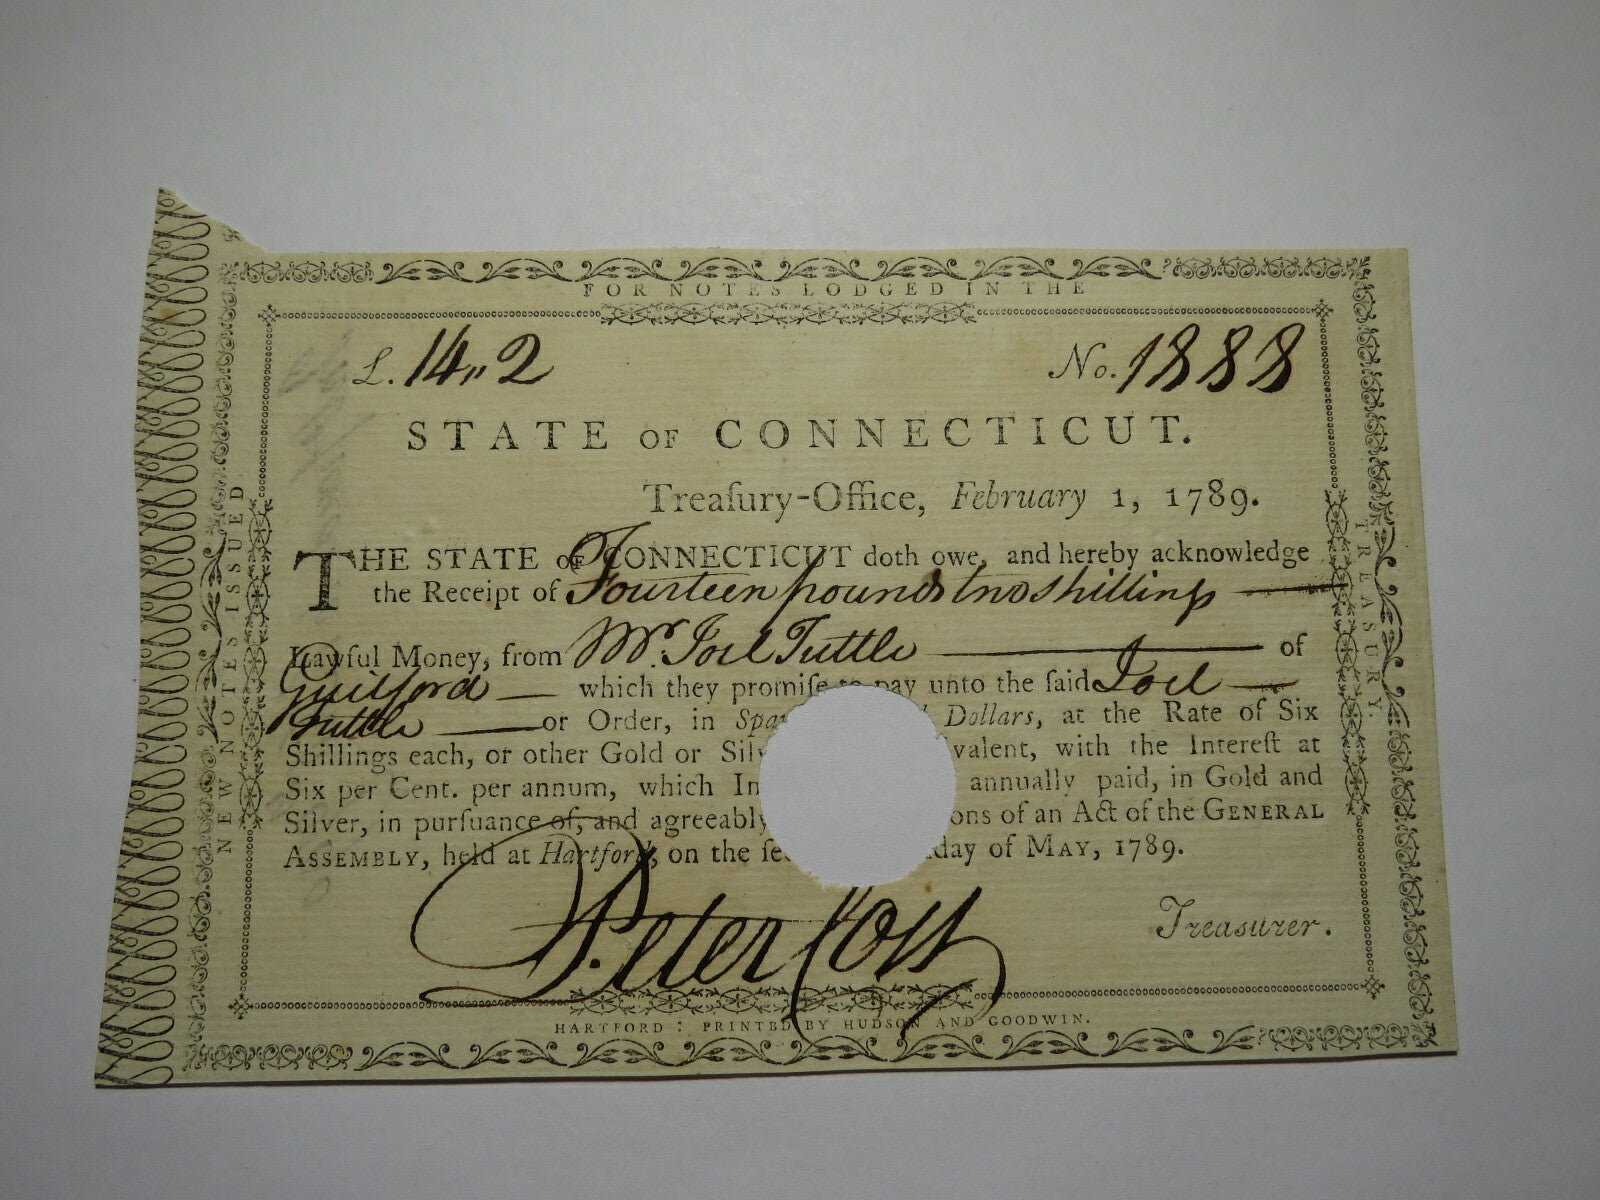 FOR NOTES LODGED IN THE
TREASURY.
NEW NOTES ISSUED
£. 14,, 2 No. 1888
STATE OF CONNECTICUT.
Treaſury-Office, February 1, 1789.
THE STATE OF CONNECTICUT doth owe, and hereby acknowledge
the Receipt of Fourteen pounds two shillings
Lawful Money, from Mr. Joel Tuttle of
Guilford which they promiſe to pay unto the ſaid Joel
Tuttle or Order, in Dollars, at the Rate of Six
Shillings each, or other Gold or with the Intereſt at
Six per Cent. per annum, which annually paid, in Gold and
Silver, in purſuance of, and agreeably of an Act of the GENERAL
ASSEMBLY, held at Hartford, on the of MAY, 1789.
Peter Colt Treasurer.
HARTFORD: PRINTED BY HUDSON AND GOODWIN.